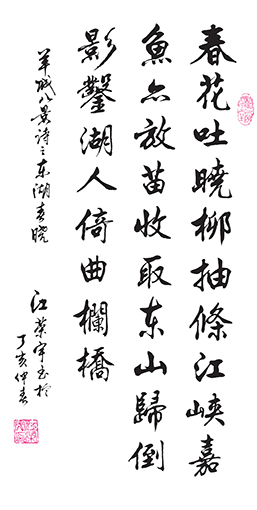 春花吐曉柳抽條江峽嘉
魚亦放苗收取東山歸倒
影鑿湖人倚曲欄橋
羊城八景詩之東湖春曉
江榮宇書於
丁亥仲春